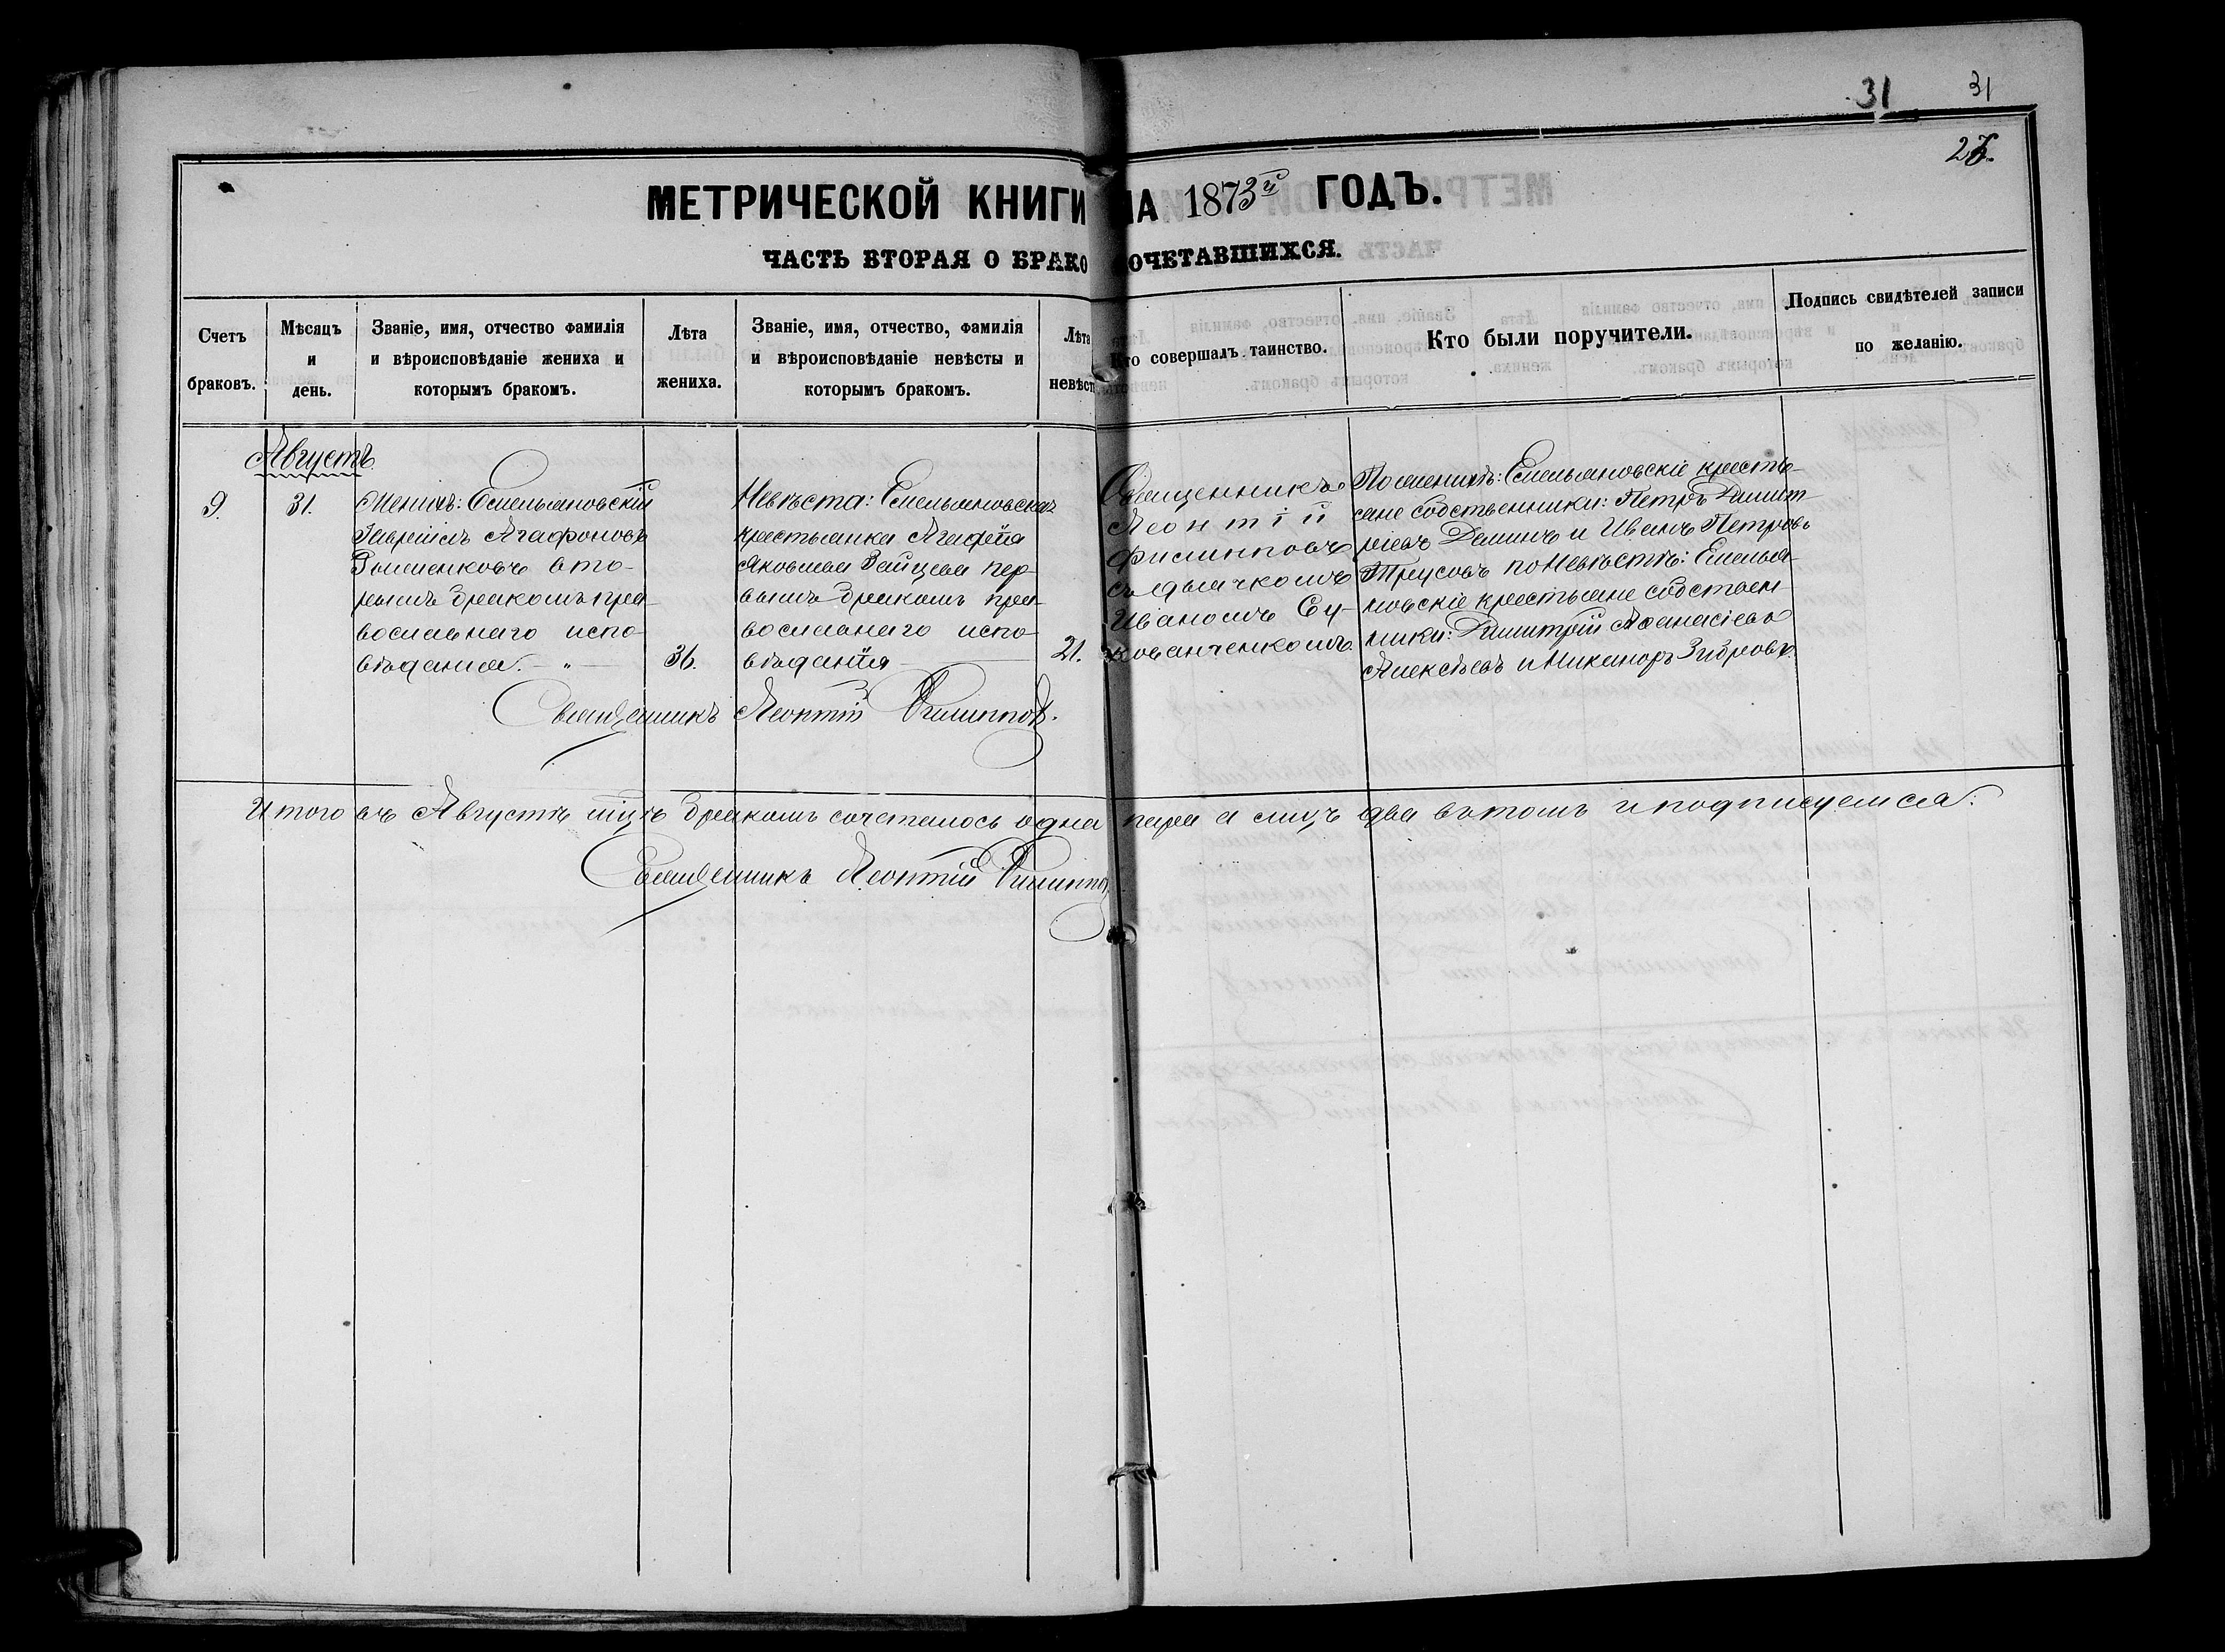 31 31
МЕТРИЧЕСКОЙ КНИГИ НА 1873й ГОДЪ.
ЧАСТЬ ВТОРАЯ О БРАКОСОЧЕТАВШИХСЯ.
Счетъ браковъ.
Мѣсяцъ и день.
Званіе, имя, отчество фамилія
и вѣроисповѣданіе жениха и
которымъ бракомъ.
Лѣта
жениха.
Званіе, имя, отчество, фамилія
и вѣроисповѣданіе невѣсты и
которымъ бракомъ.
Лѣта
невѣст
Кто совершалъ таинство.
Кто были поручители.
Подпись свидѣтелей записи
по желанію.
Августъ
9. 31.
Женихъ: Емельяновскій
Гавріилъ Агафоновъ
вто-
рымъ бракомъ пра-
вославнаго испо-
вѣданія. — „ —
36.
Невѣста: Емельяновская
крестьянка Агафія
Яковлева Зайцева пер-
вымъ бракомъ пра-
вославнаго испо-
вѣданія
21.
Священникъ
Леонтій
Филипповъ
съ дьячкомъ
Иваномъ Су-
кованченкомъ.
По женихѣ: Емельяновскіе кресть-
яне собственники: Петръ Димит-
ріевъ Деминъ и Иванъ Петровъ
Трусовъ по Невѣстѣ: Емелья-
новскіе крестьяне собствен-
ники: Димитрій Аѳанасіевъ
Алексѣевъ и Никаноръ Зибровъ.
Священникъ Леонтій Филипповъ.
Итого въ Августѣ мцѣ бракомъ сочеталось одна пара а лицъ два въ томъ и подписуемся:
Священникъ Леонтій Филипповъ